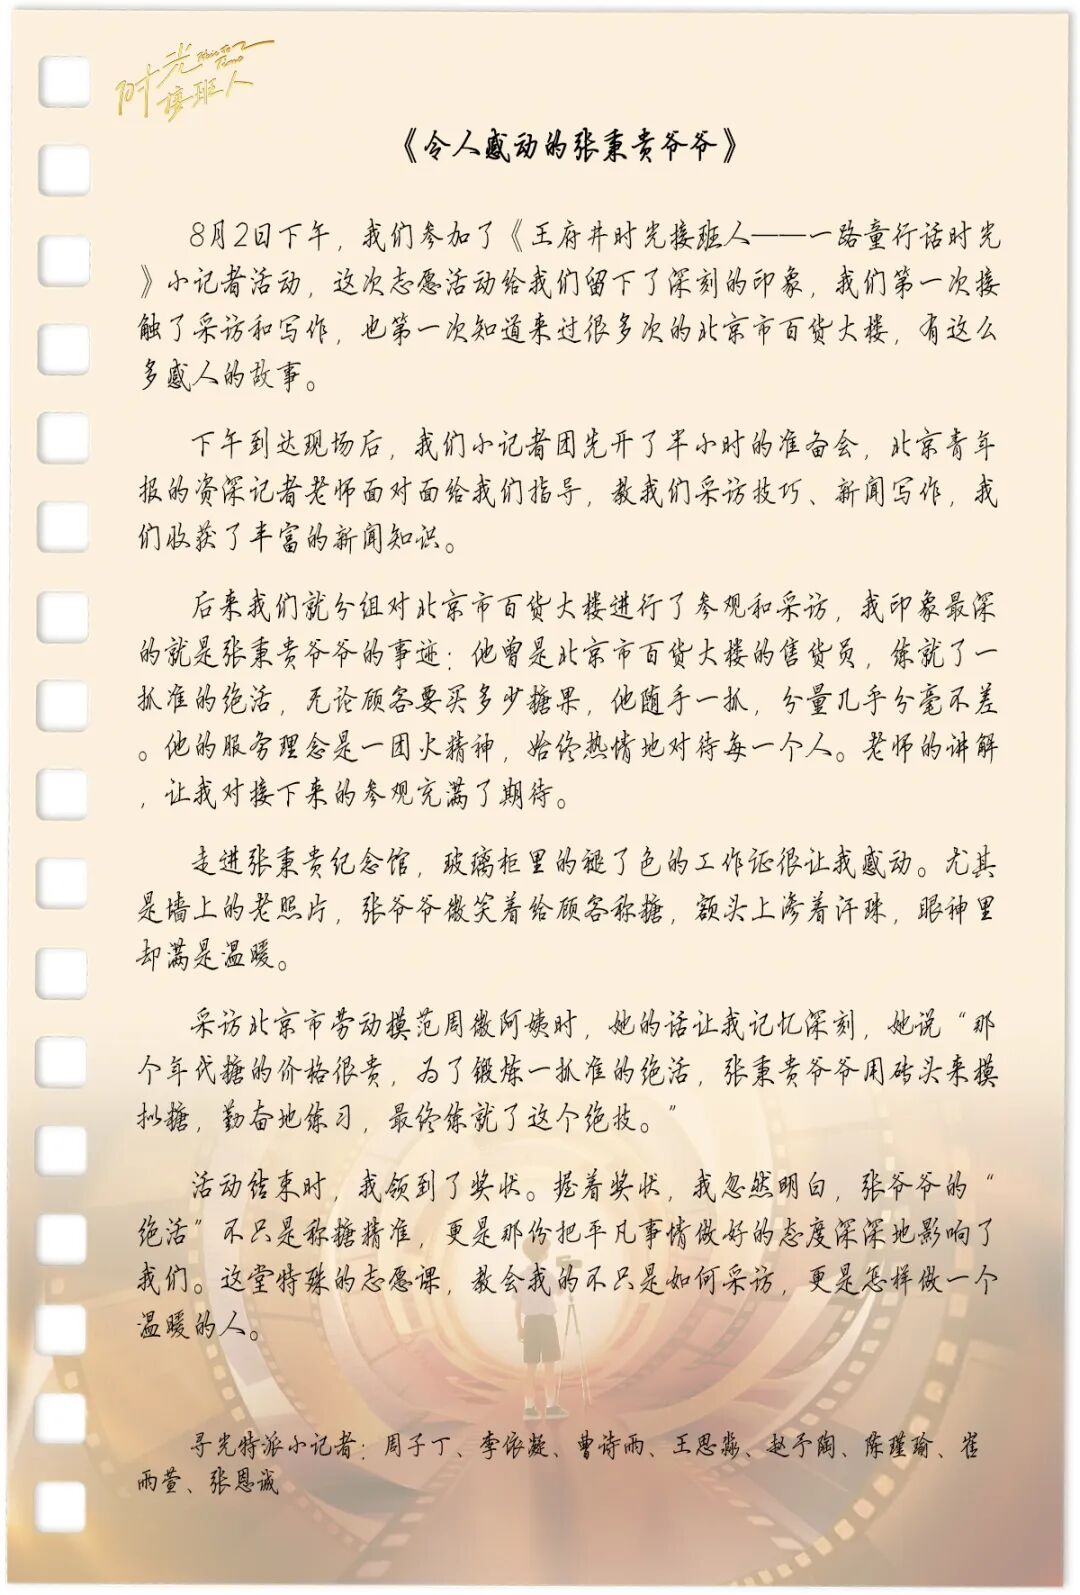 时光
接班人
《令人感动的张秉贵爷爷》
8月2日下午，我们参加了《王府井时光接班人——一路童行话时光
》小记者活动，这次志愿活动给我们留下了深刻的印象，我们第一次接
触了采访和写作，也第一次知道来过很多次的北京市百货大楼，有这么
多感人的故事。
下午到达现场后，我们小记者团先开了半小时的准备会，北京青年
报的资深记者老师面对面给我们指导，教我们采访技巧、新闻写作，我
们收获了丰富的新闻知识。
后来我们就分组对北京市百货大楼进行了参观和采访，我印象最深
的就是张秉贵爷爷的事迹：他曾是北京市百货大楼的售货员，练就了一
抓准的绝活，无论顾客要买多少糖果，他随手一抓，分量几乎分毫不差
。他的服务理念是一团火精神，始终热情地对待每一个人。老师的讲解
，让我对接下来的参观充满了期待。
走进张秉贵纪念馆，玻璃柜里的褪了色的工作证很让我感动。尤其
是墙上的老照片，张爷爷微笑着给顾客称糖，额头上渗着汗珠，眼神里
却满是温暖。
采访北京市劳动模范周微阿姨时，她的话让我记忆深刻，她说“那
个年代糖的价格很贵，为了锻炼一抓准的绝活，张秉贵爷爷用砖头来模
拟糖，勤奋地练习，最终练就了这个绝技。”
活动结束时，我领到了奖状。握着奖状，我忽然明白，张爷爷的“
绝活”不只是称糖精准，更是那份把平凡事情做好的态度深深地影响了
我们。这堂特殊的志愿课，教会我的不只是如何采访，更是怎样做一个
温暖的人。
寻光特派小记者：周子丁、李依凝、曹诗雨、王思淼、赵予陶、陈瑾瑜、崔
雨萱、张恩诚